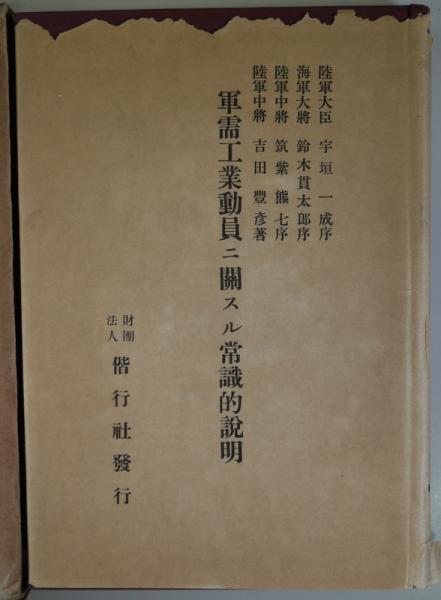 陸軍大臣 宇垣一成序
海軍大將 鈴木貫太郎序
陸軍中將 筑紫熊七序
陸軍中將 吉田豐彦著
軍需工業動員ニ關スル常識的說明
財團法人 偕行社發行